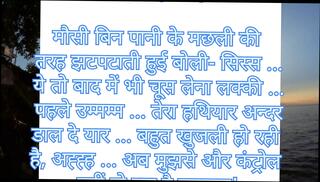 मौसी बिन पानी के मछली की
तरह झटपटाती हुई बोली- सिस्स ...
ये तो बाद में भी चूस लेना लक्की ...
पहले उम्मम्म ... तेरा हथियार अन्दर
डाल दे यार ... बहुत खुजली हो रही
है, अह्ह्ह ... अब मुझसे और कंट्रोल